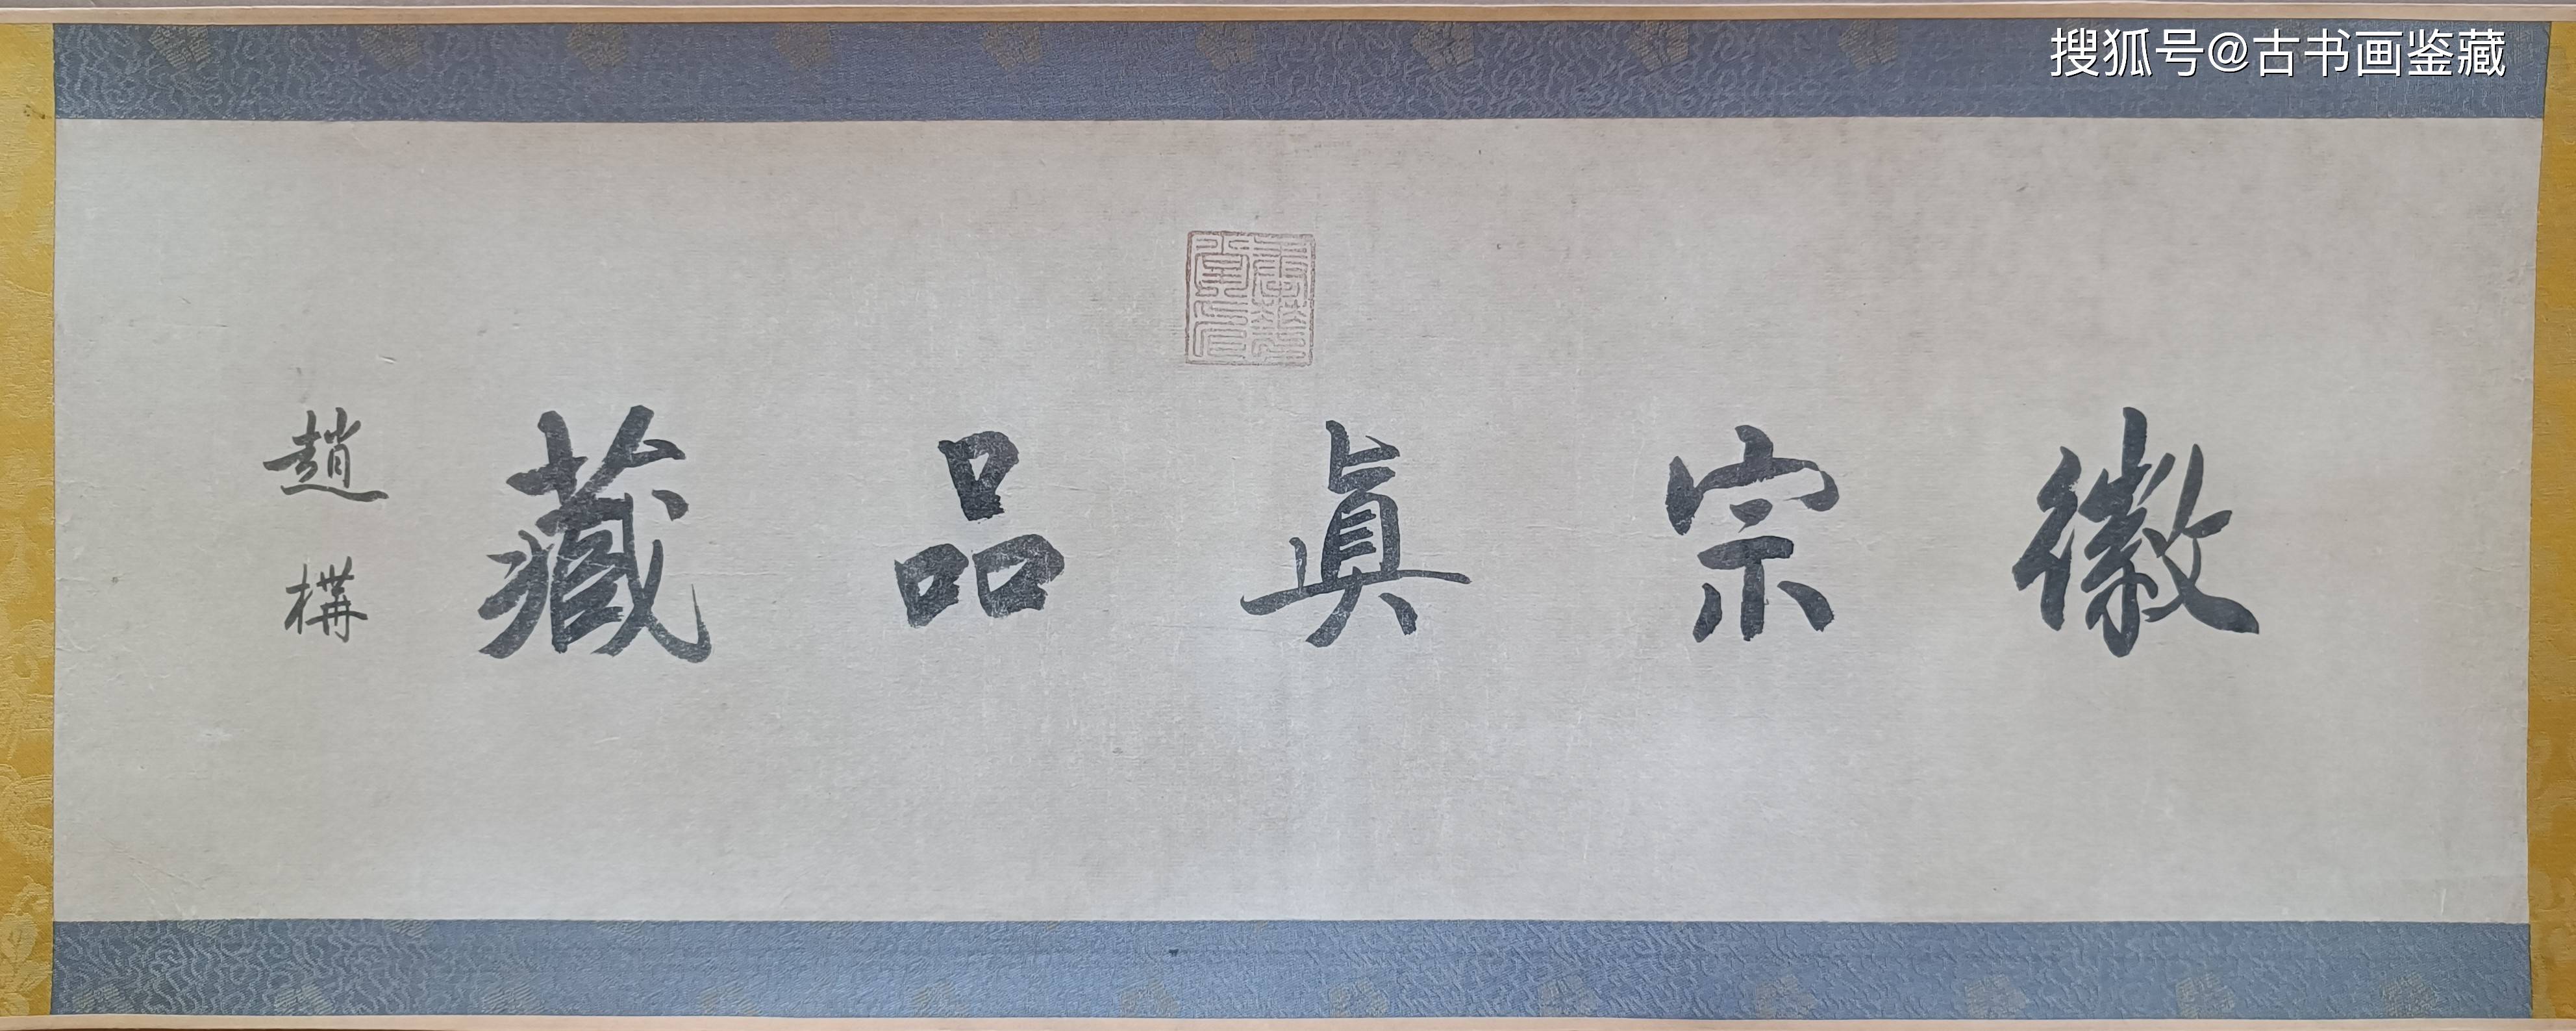 搜狐号@古书画鉴藏
徽宗真品藏
趙構